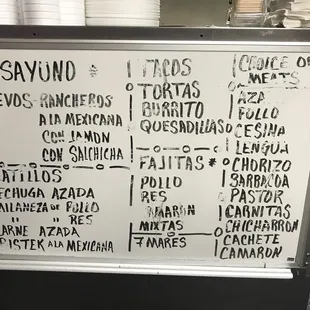 SAYUNO
EVOS-RANCHEROS
A LA MEXICANA
CON JAMON
CON SALCHICHA
ATILLOS
ECHUGA AZADA
AILANEZA DE POLLO
" " RES
ARNE AZADA
PISTEK A LA MEXICANA
TACOS
TORTAS
BURRITO
QUESADILLAS
FAJITAS *
POLLO
RES
AMARON
MIXTAS
7 MARES
CHOICE OF
MEATS
AZA
POLLO
CESINA
LENGUA
CHORIZO
BARBACOA
PASTOR
CARNITAS
CHICHARRON
CACHETE
CAMARON